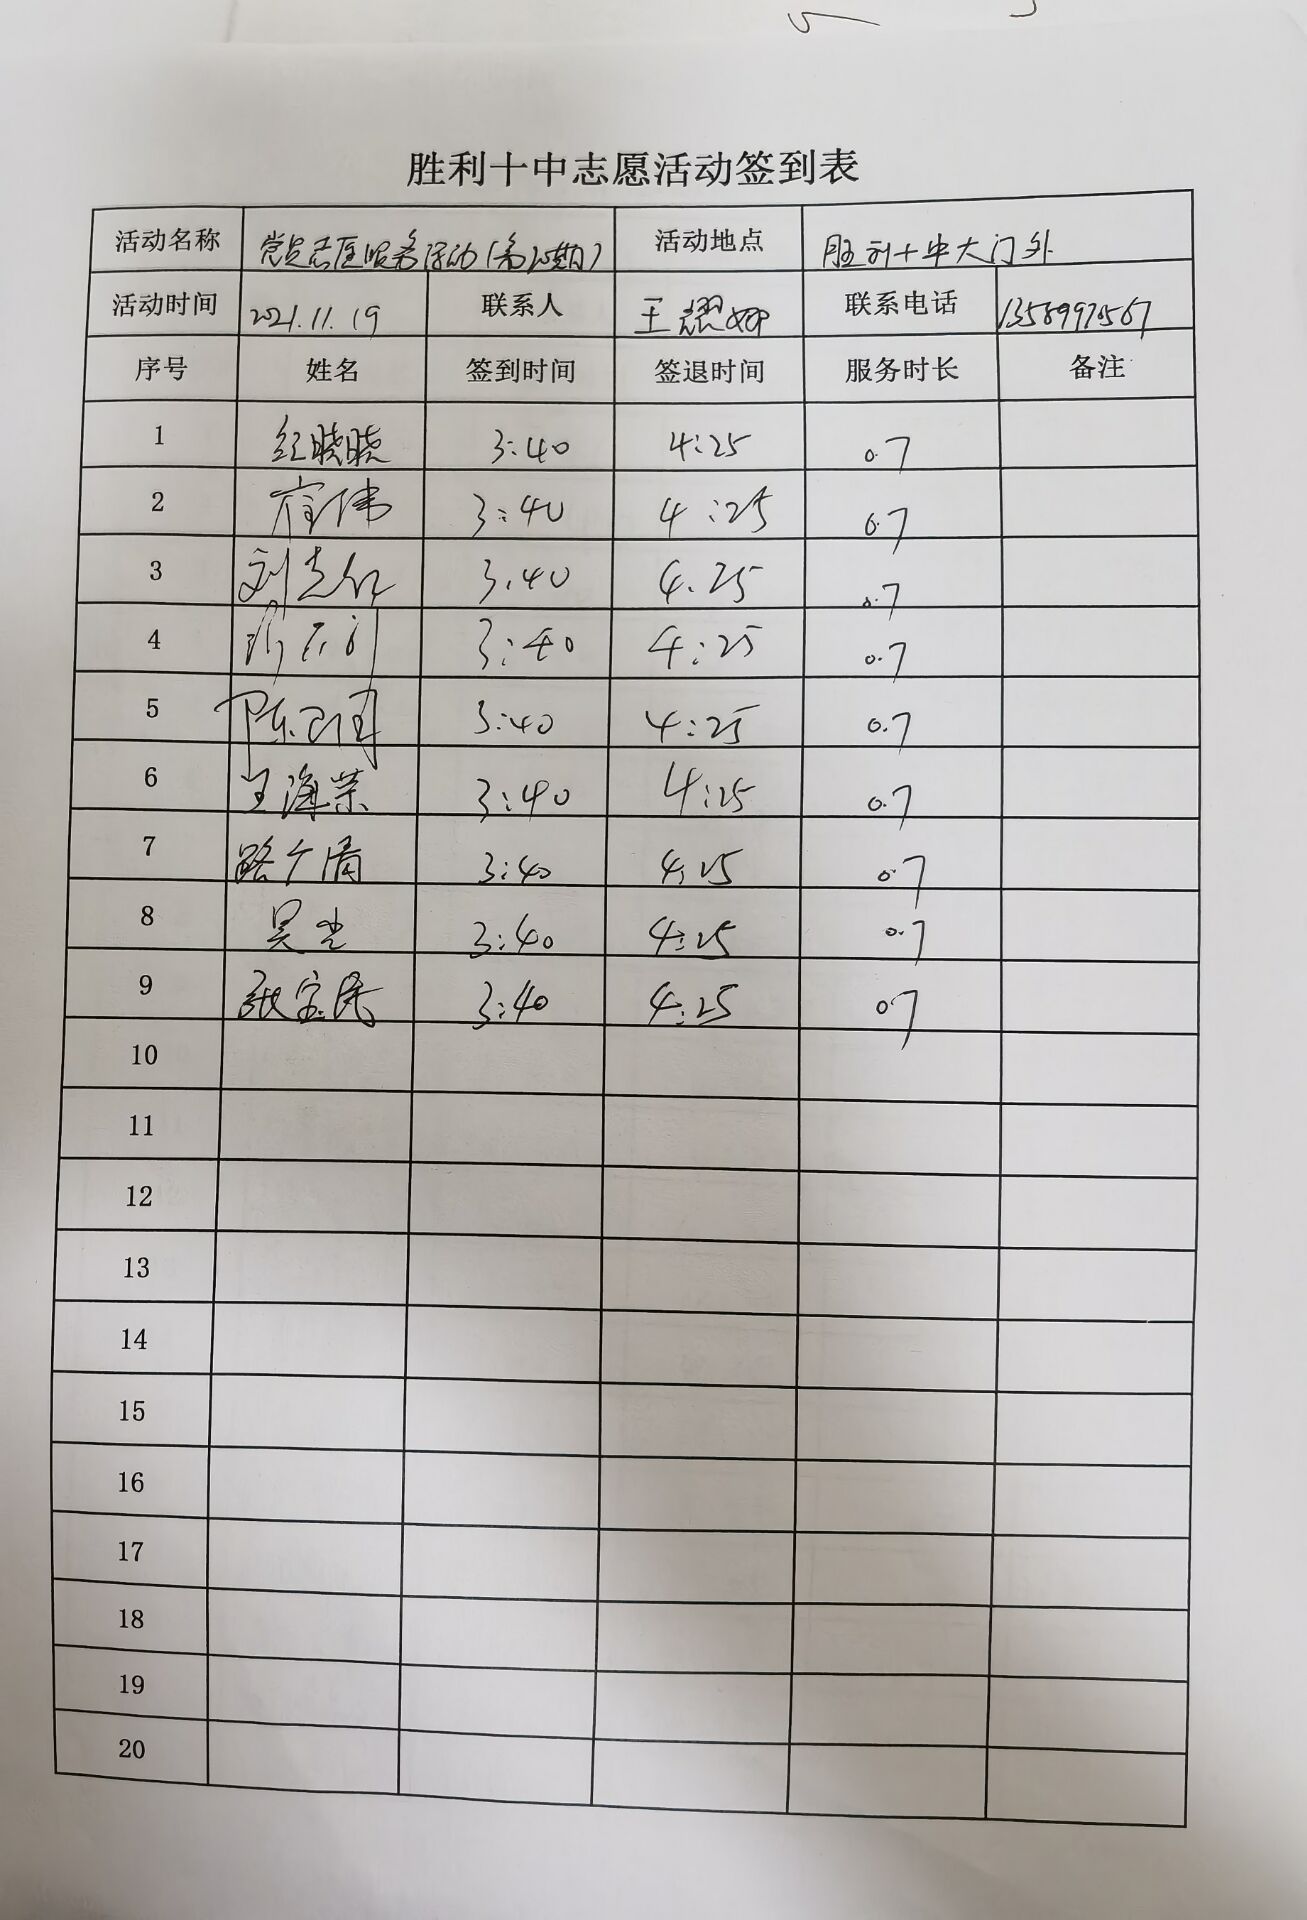 胜利十中志愿活动签到表
活动名称 党员志愿服务活动 活动地点 胜利十中大门外
活动时间 2021.11.19 联系人 王 联系电话
序号 姓名 签到时间 签退时间 服务时长 备注
1 纪晓晓 3:40 4:25 0.7
2 崔伟 3:40 4:25 0.7
3 刘志红 3.40 4.25 0.7
4 3:40 4:25 0.7
5 陈 3:40 4:25 0.7
6 王海荣 3:40 4:25 0.7
7 路广清 3:40 4:25 0.7
8 吴 3:40 4:25 0.7
9 张宝民 3:40 4:25 0.7
10
11
12
13
14
15
16
17
18
19
20